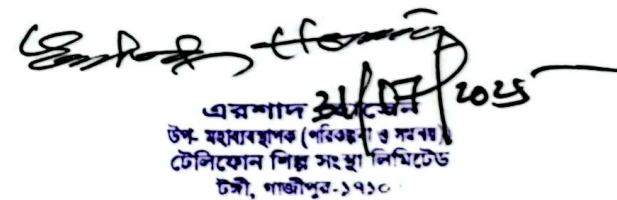 31/07/2025
এরশাদ হোসেন
উপ-মহাব্যবস্থাপক (পরিকল্পনা ও সমন্বয়)
টেলিফোন শিল্প সংস্থা লিমিটেড
টঙ্গী, গাজীপুর-১৭১০